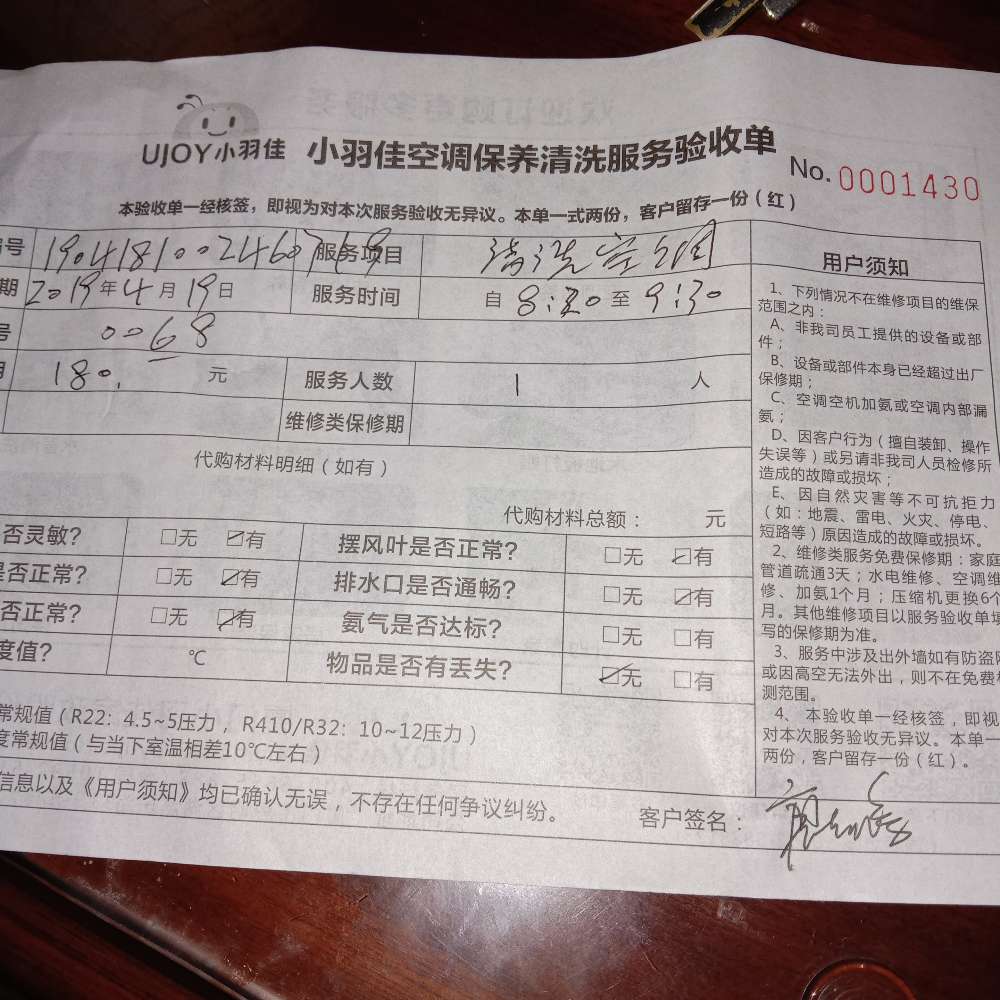 UJOY小羽佳 小羽佳空调保养清洗服务验收单 No. 0001430
本验收单一经核签，即视为对本次服务验收无异议。本单一式两份，客户留存一份（红）
号 190418100246 服务项目 清洗空调
期 2019年4月19日 服务时间 自8:30至9:30
号 0068
180. 元 服务人数 1 人
维修类保修期
代购材料明细（如有）
代购材料总额： 元
否灵敏? □无 ☑有 摆风叶是否正常? □无 ☑有
是否正常? □无 ☑有 排水口是否通畅? □无 ☑有
否正常? □无 ☑有 氨气是否达标? □无 □有
度值? ℃ 物品是否有丢失? ☑无 □有
常规值（R22：4.5~5压力，R410/R32：10~12压力）
度常规值（与当下室温相差10℃左右）
信息以及《用户须知》均已确认无误，不存在任何争议纠纷。 客户签名：
用户须知
1、下列情况不在维修项目的维保
范围之内：
A、非我司员工提供的设备或部
件；
B、设备或部件本身已经超过出厂
保修期；
C、空调空机加氨或空调内部漏
氨；
D、因客户行为（擅自装卸、操作
失误等）或另请非我司人员检修所
造成的故障或损坏；
E、因自然灾害等不可抗拒力
（如：地震、雷电、火灾、停电、
短路等）原因造成的故障或损坏。
2、维修类服务免费保修期：家庭
管道疏通3天；水电维修、空调维
修、加氨1个月；压缩机更换6个
月。其他维修项目以服务验收单填
写的保修期为准。
3、服务中涉及出外墙如有防盗网
或因高空无法外出，则不在免费检
测范围。
4、本验收单一经核签，即视
对本次服务验收无异议。本单一
两份，客户留存一份（红）。